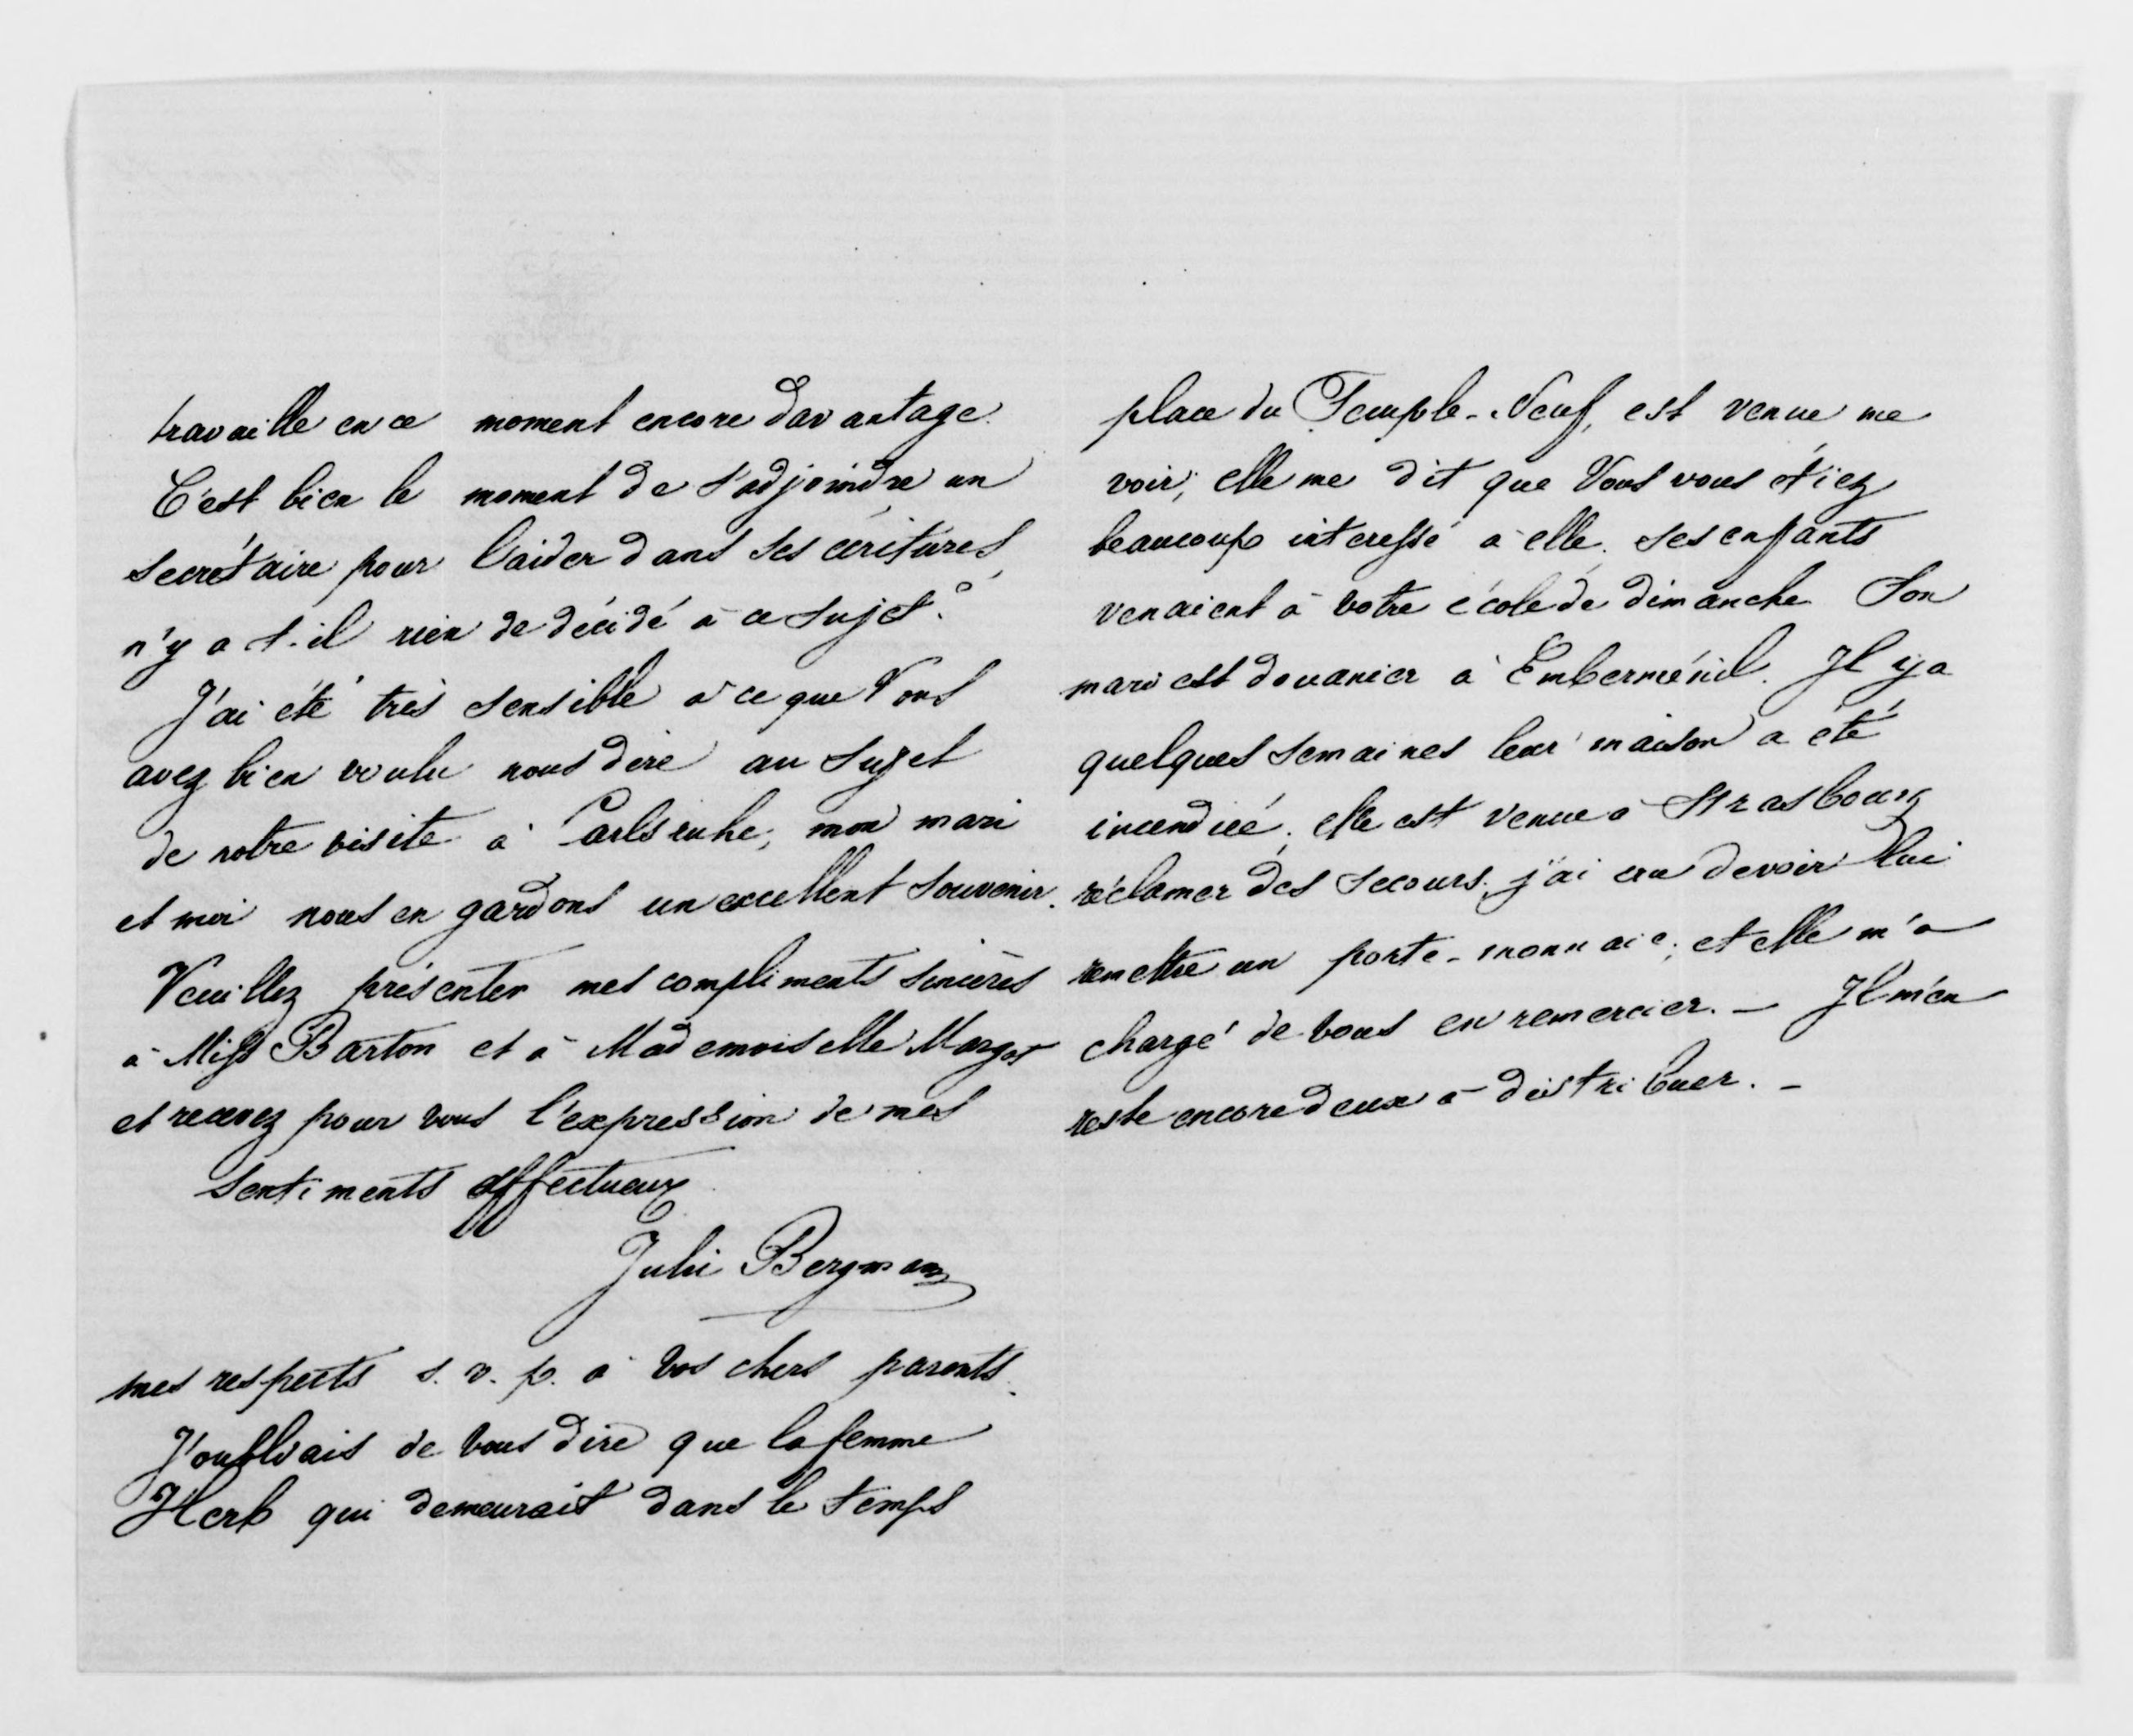 travaille en ce moment encore davantage.
C'est bien le moment de s'adjoindre un
secrétaire pour l'aider dans ses écritures,
n'y a t-il rien de décidé à ce sujet?
J'ai été très sensible à ce que Vous
avez bien voulu nous dire au sujet
de notre visite à Carlsruhe, mon mari
et moi nous en gardons un excellent souvenir.
Veuillez présenter mes compliments sincères
à Miss Barton et à Mademoiselle Margot
et recevez pour vous l'expression de mes
sentiments affectueux
Julie Bergmann
mes respects s. v. p. à vos chers parents.
J'oubliais de vous dire que la femme
Herb qui demeurait dans le temps
place du Temple-Neuf, est venue me
voir; elle me dit que Vous vous étiez
beaucoup interessé à elle, ses enfants
venaient à votre école de dimanche Son
mari est douanier à Emberménil. Il y a
quelques semaines leur maison a été
incendiée, elle est venue à Strasbourg
réclamer des secours. j'ai cru devoir lui
remettre un porte-monnaie, et elle m'a
chargé de vous en remercier. — Il m'en
reste encore deux à distribuer. —